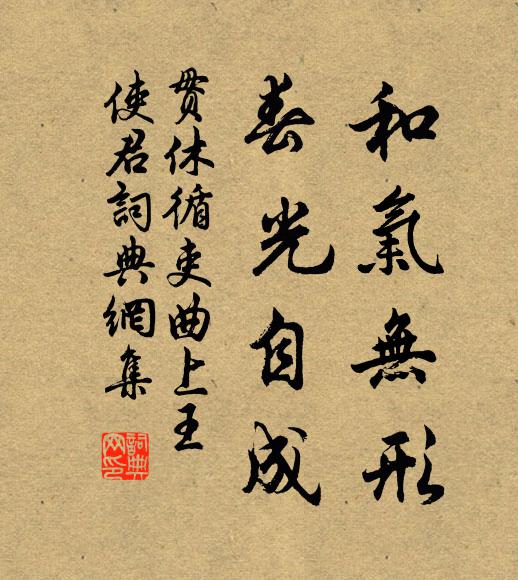 和氣無形
春光自成
貫休循吏曲上王
使君詞典網集
詞典
网印